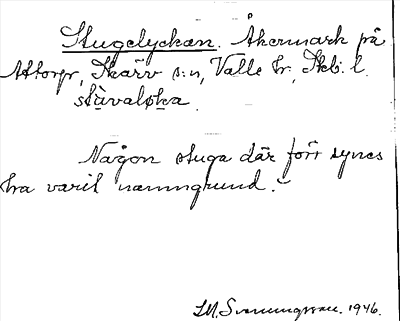 Stugelyckan. Åkermark på
Attorp, Skärv s:n, Valle hr, Skb. l.
stuvalöka.
Någon stuga där förr synes
ha varit namngrund.
S.M. Svenningsson. 1946.